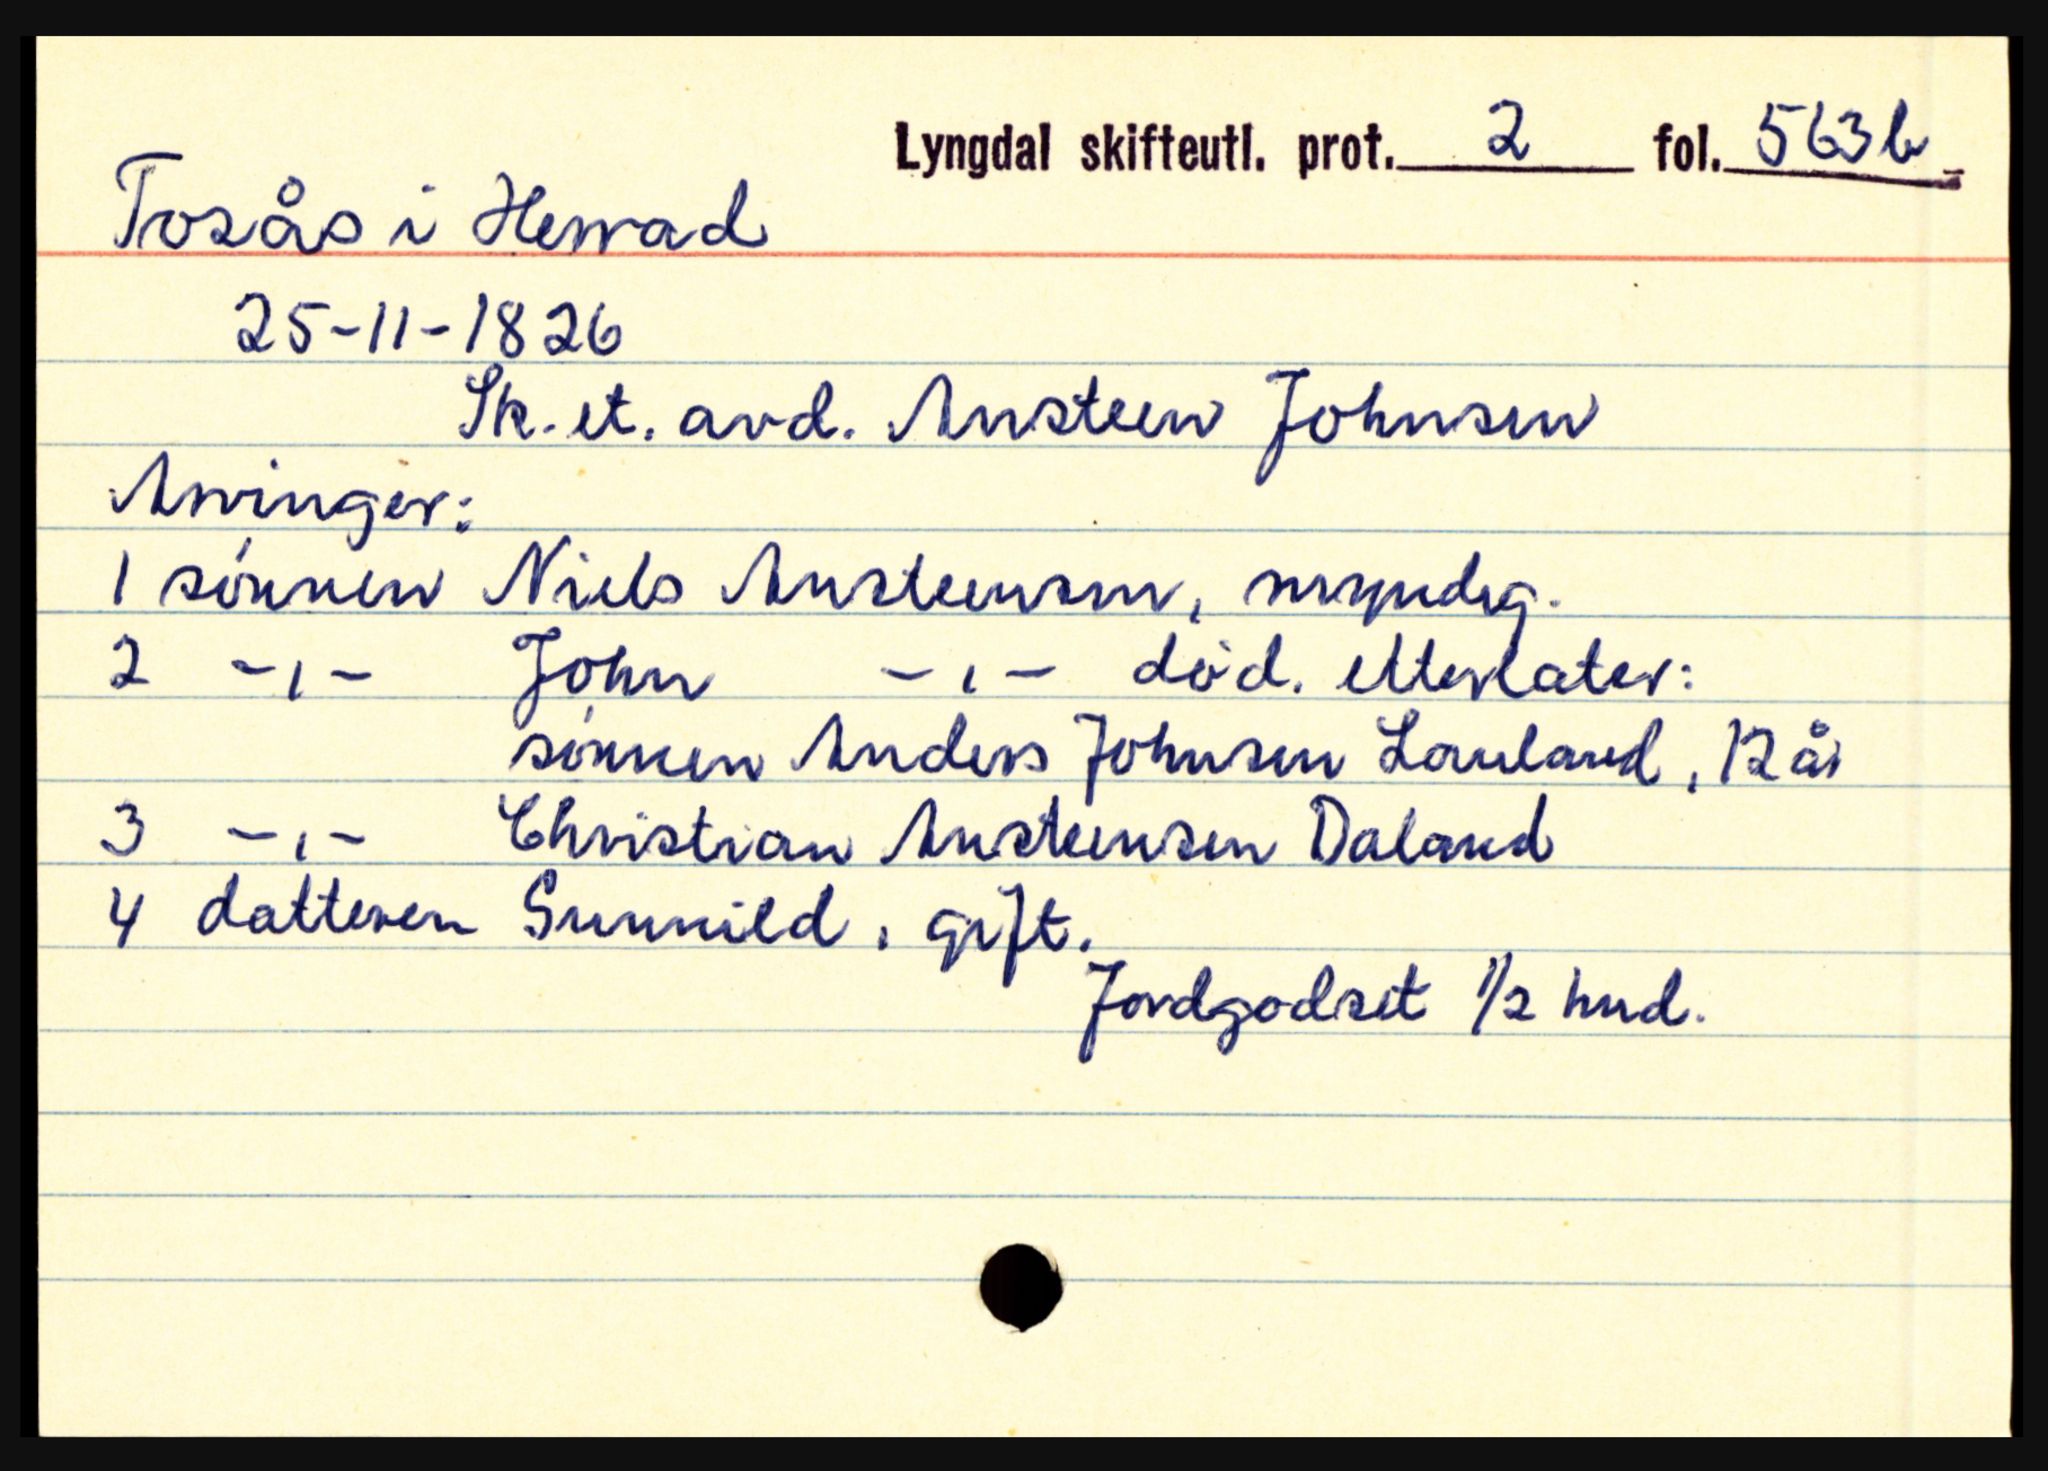 Lyngdal skifteutl. prot. 2 fol. 563b
Tosås i Herrad
25-11-1826
Sk. et. avd. Austeen Johnsen
Arvinger:
1 sønnen Niels Austeensen, myndig.
2 -,- John -,- død. etterlater:
sønnen Anders Johnsen Lauland, 12 år
3 -,- Christian Austeensen Daland
4 datteren Gunnild, gift.
Jordgodset 1/2 hud.